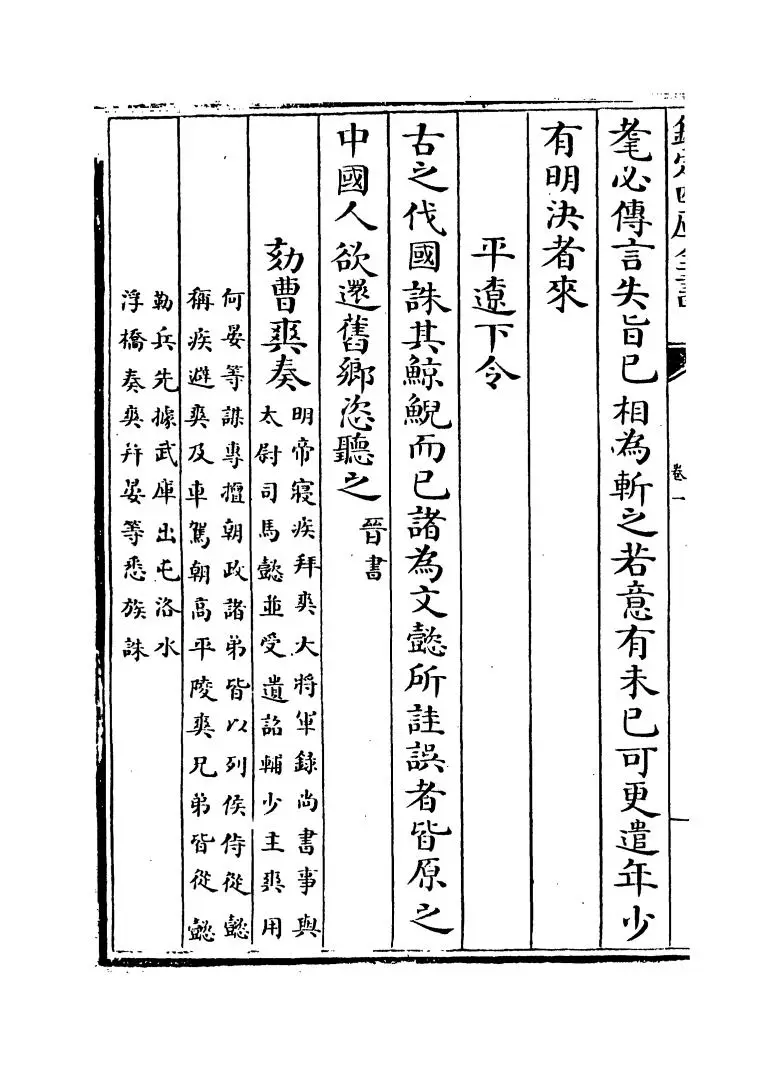 欽定四庫全書
卷一
耄必傳言失旨已相為斬之若意有未已可更遣年少
有明決者來
平遼下令
古之代國誅其鯨鯢而已諸為文懿所詿誤者皆原之
中國人欲還舊鄉恣聽之晉書
劾曹爽奏明帝寢疾拜爽大將軍錄尚書事與
太尉司馬懿並受遺詔輔少主爽用
何晏等謀專擅朝政諸弟皆以列侯侍從懿
稱疾避爽及車駕朝高平陵爽兄弟皆從懿
勒兵先據武庫出屯洛水
浮橋奏爽幷晏等悉族誅